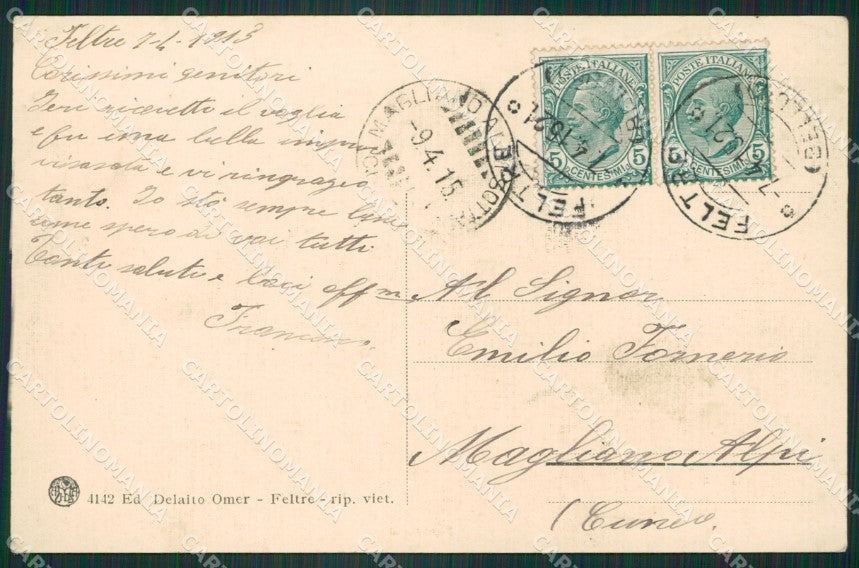 Feltre 7-4-1915
Carissimi genitori
Ieri ricevetti il vaglia
e fu una bella improv
visata e vi ringrazio
tanto. Io stò sempre bene
come spero di voi tutti
Tanti saluti e baci aff.mo
Francesco
POSTE ITALIANE
5 CENTESIMI 5
POSTE ITALIANE
5 CENTESIMI 5
MAGLIANO ALPI
-9.4.15
FELTRE
FELTRE
(BELLUNO)
Al Signor
Emilio Fornerio
Magliano Alpi
(Cuneo.
4142 Ed Delaito Omer - Feltre - rip. viet.
CARTOLINOMANIA